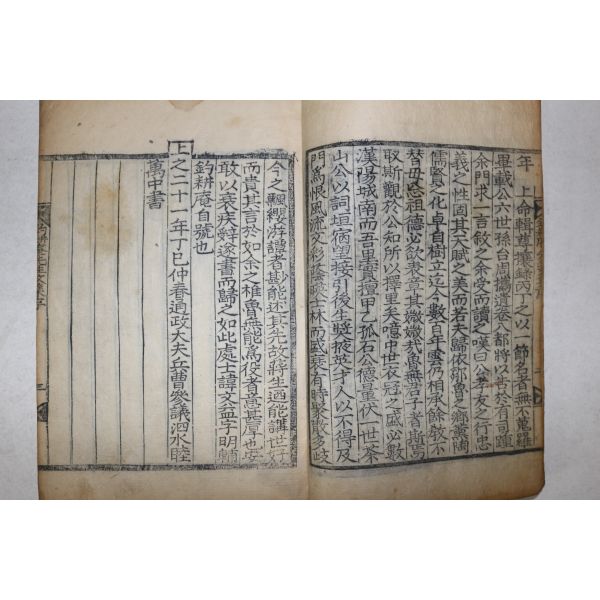 年 上命輯尊攘錄丙丁之以一節名者無不蒐羅
畢載公六世孫台周攜遺卷入都將以
余門求一言敘之余受而讀之嘆曰公孝友之行忠
義之性固其天賦之美而若夫歸依鄒魯之鄕薰陶
儒賢之化卓自樹立迄今數百年雲仍相承餘敎不
替毋忝祖德必欲表章其微媺哉魯無君子者斯焉
取斯觀於公知所以擇里矣噫中世衣冠之盛必數
漢陽城南而吾里實擅甲乙孤石公德量伏一世茶
山公以詞垣宿望接引後生奬掖英才人以不得及
門爲恨風流文彩蔭暎士林而盛衰有時聚散多歧
今之飄纓游譚者尠能述其先故蔣生迺能講世好
而責其言於如余之椎魯無能爲役者意甚厚也安
敢以衰疾辭遂書而歸之如此處士諱文益字明輔
釣耕庵自號也
上之二十一年丁巳仲春通政大夫兵曹參議泗水睦
萬中書